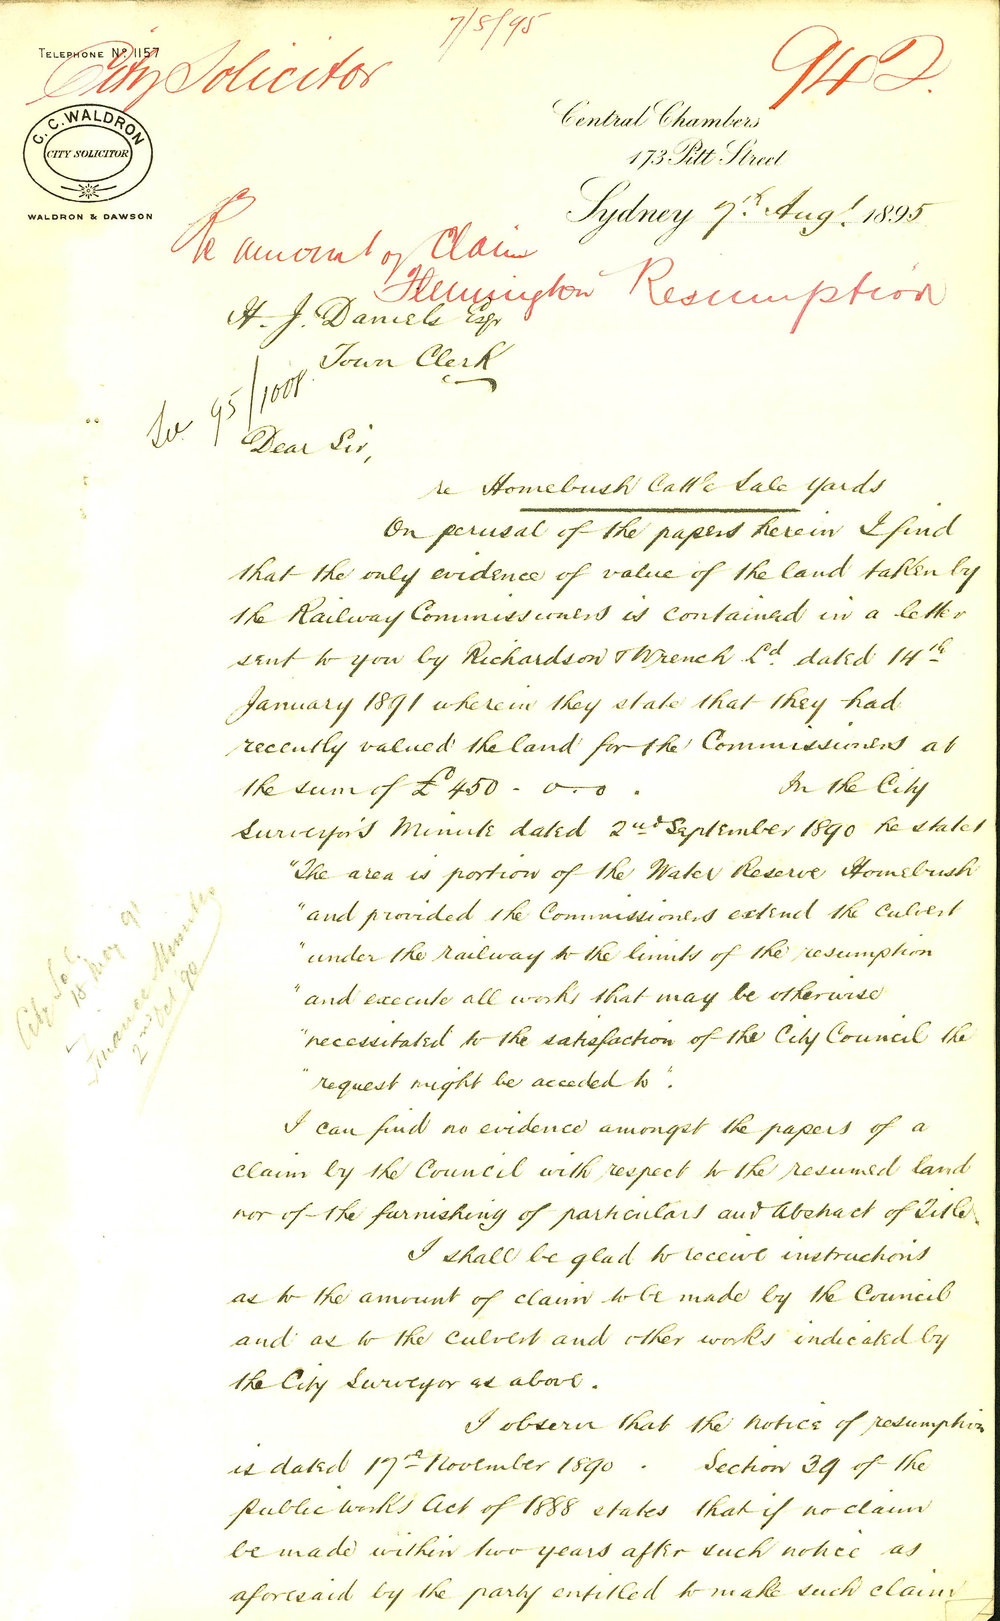 7/8/95
TELEPHONE No. 1157
City Solicitor
942.
C. C. WALDRON
CITY SOLICITOR
WALDRON & DAWSON
Central Chambers
173 Pitt Street
Sydney 7th Augt. 1895
Re amount of Claim
Flemington Resumption
H. J. Daniels Esqr
Town Clerk
95/1008
Dear Sir,
re Homebush Cattle Sale Yards
On perusal of the papers herein I find
that the only evidence of value of the land taken by
the Railway Commissioners is contained in a letter
sent to you by Richardson & Wrench Ld. dated 14th
January 1891 wherein they state that they had
recently valued the land for the Commissioners at
the sum of £450 - 0 - 0 . In the City
Surveyor's Minute dated 2nd September 1890 he states
"The area is portion of the Water Reserve Homebush
"and provided the Commissioners extend the culvert
"under the railway to the limits of the resumption
"and execute all works that may be otherwise
"necessitated to the satisfaction of the City Council the
"request might be acceded to".
City Sol.
18 May 91
Finance Minutes
2nd Oct 90
I can find no evidence amongst the papers of a
claim by the Council with respect to the resumed land
nor of the furnishing of particulars and Abstract of Title.
I shall be glad to receive instructions
as to the amount of claim to be made by the Council
and as to the culvert and other works indicated by
the City Surveyor as above.
I observe that the notice of resumption
is dated 17th November 1890 . Section 39 of the
Public Works Act of 1888 states that if no claim
be made within two years after such notice as
aforesaid by the party entitled to make such claim